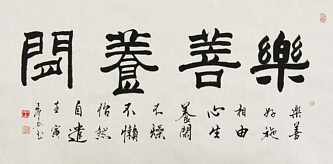 樂善養閒
樂善
好施
相由
心生
養閒
不燥
不懶
怡然
自遣
壬寅
书